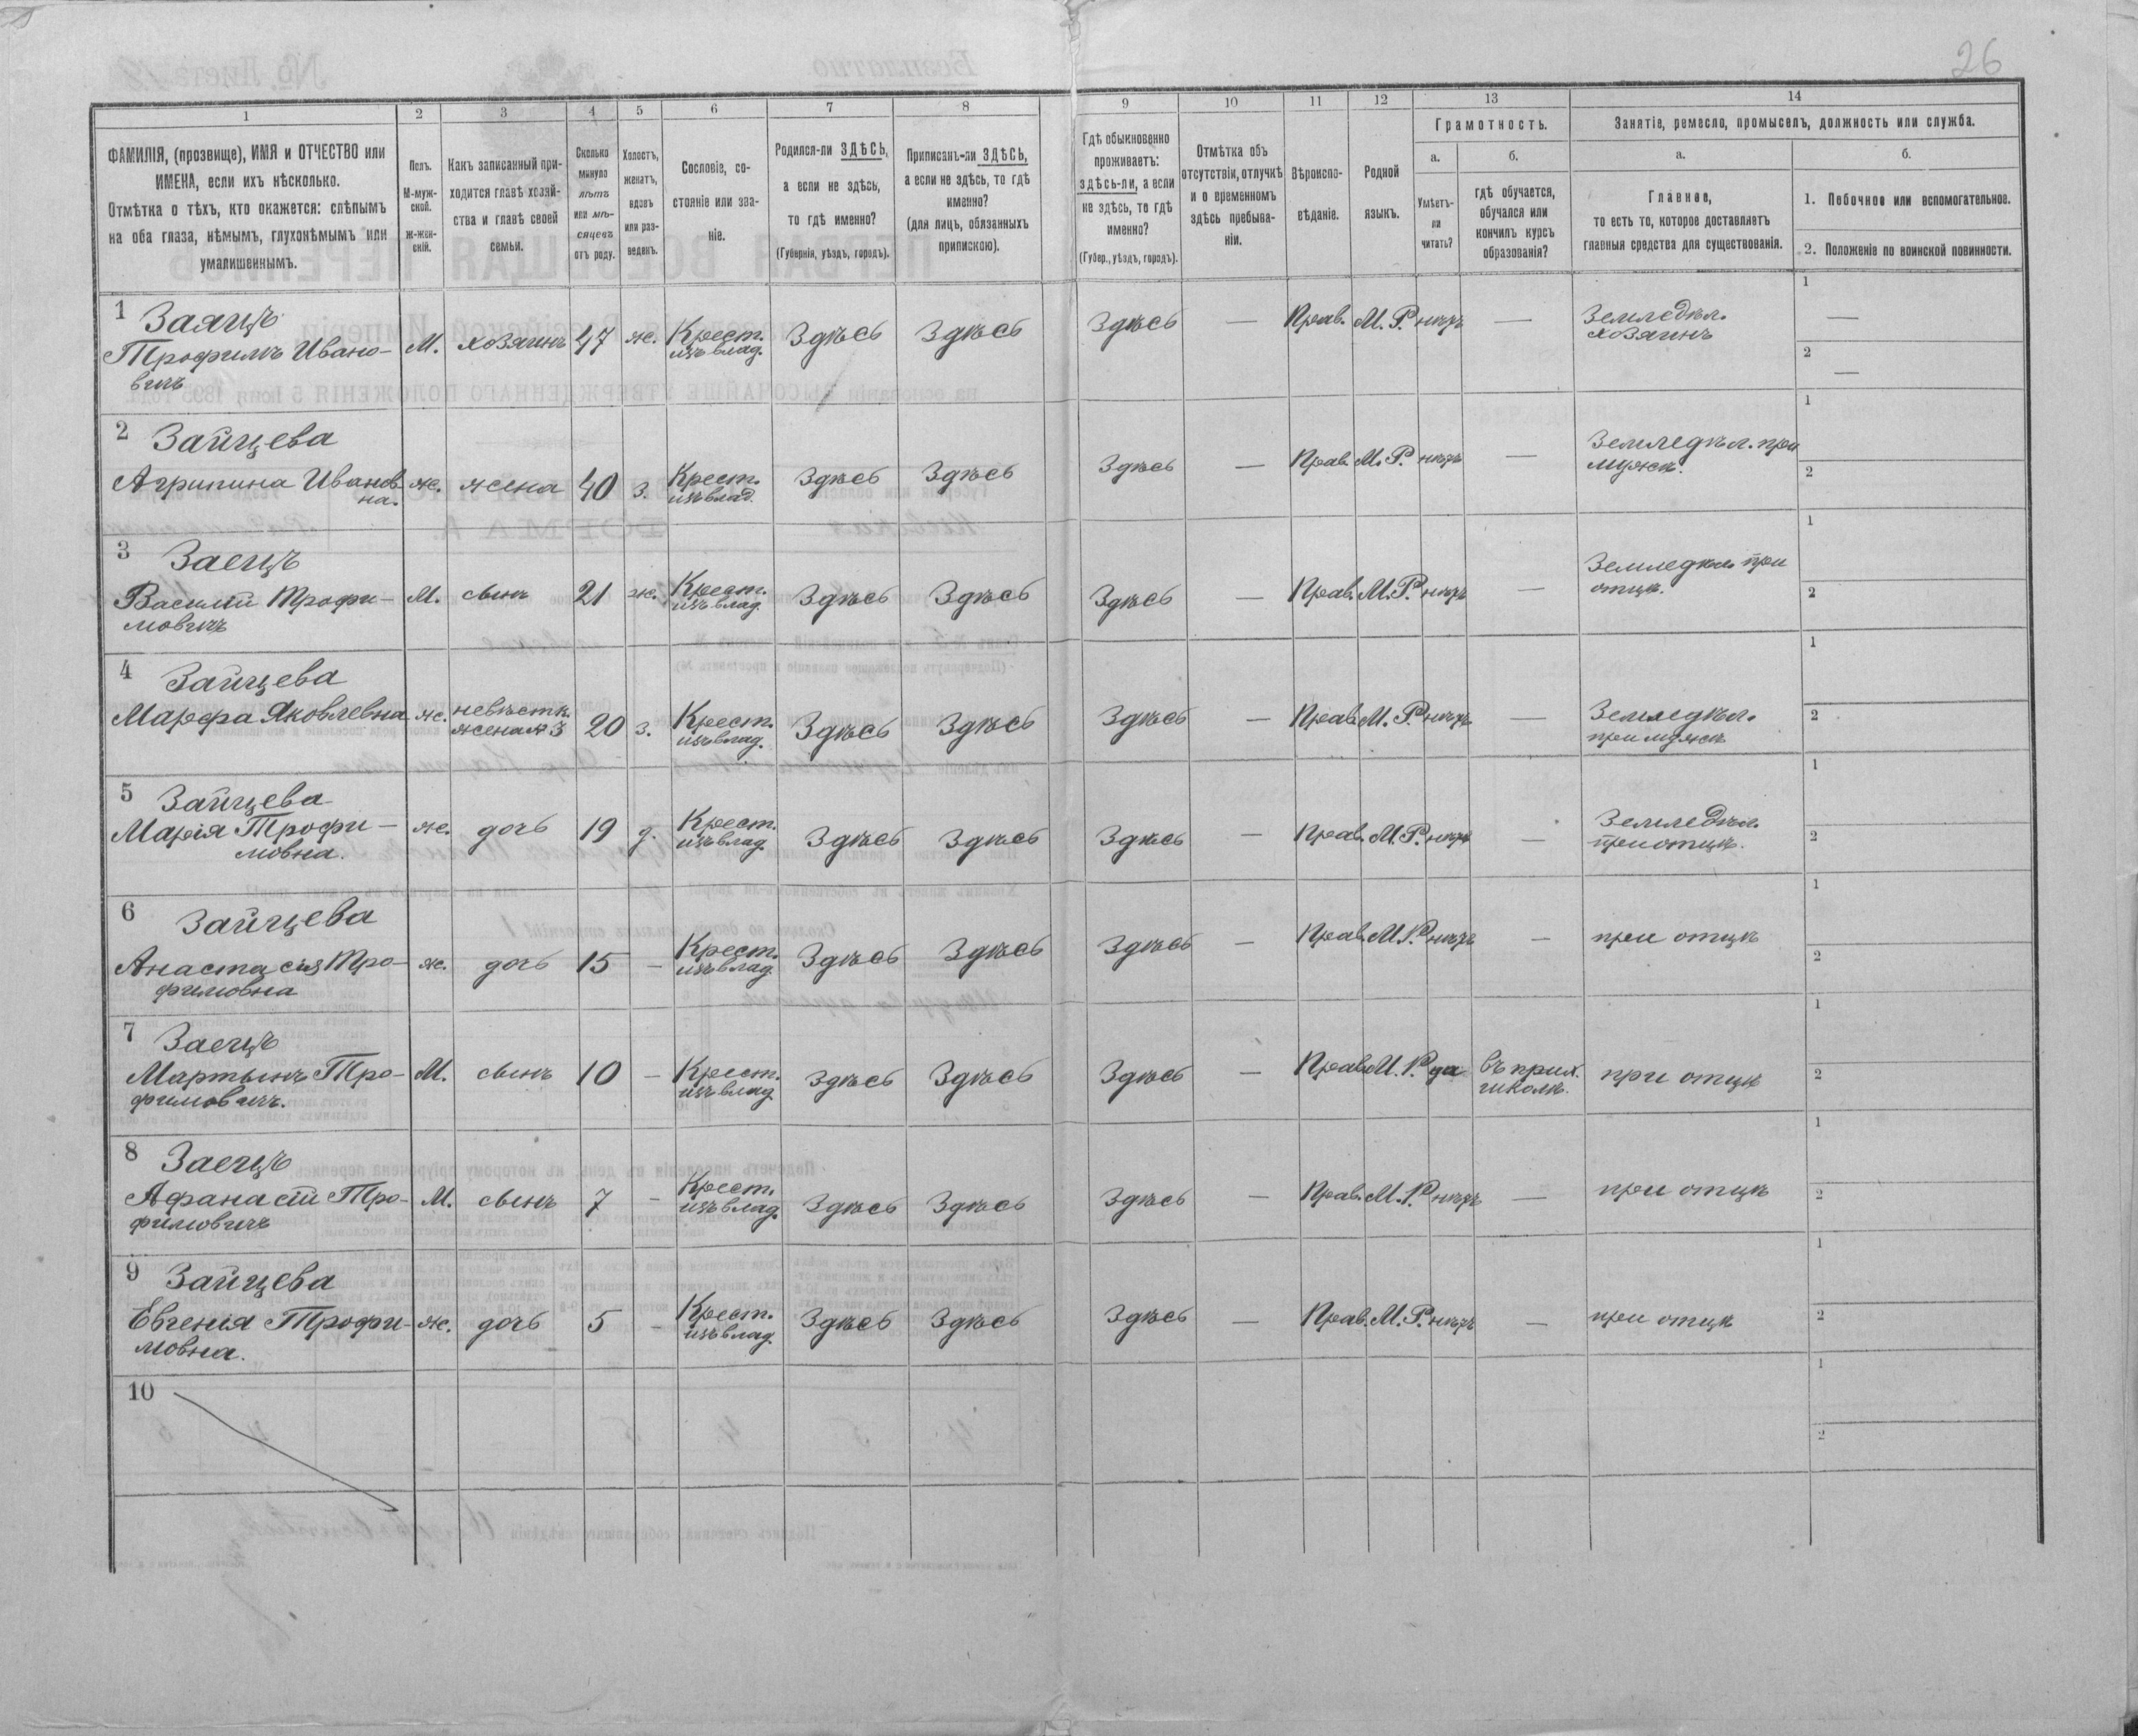 26
1 2 3 4 5 6 7 8 9 10 11 12 13 14
ФАМИЛІЯ, (прозвище), ИМЯ и ОТЧЕСТВО или
ИМЕНА, если ихъ нѣсколько.
Отмѣтка о тѣхъ, кто окажется: слѣпымъ
на оба глаза, нѣмымъ, глухонѣмымъ или
умалишеннымъ.
Полъ.
М-муж-
ской.
Ж-жен-
скій.
Какъ записанный при-
ходится главѣ хозяй-
ства и главѣ своей
семьи.
Сколько
минуло
лѣтъ
или мѣ-
сяцевъ
отъ роду.
Холостъ,
женатъ,
вдовъ
или раз-
веденъ.
Сословіе, со-
стояніе или зва-
ніе.
Родился-ли ЗДѢСЬ,
а если не здѣсь,
то гдѣ именно?
(Губернія, уѣздъ, городъ).
Приписанъ-ли ЗДѢСЬ,
а если не здѣсь, то гдѣ
именно?
(для лицъ, обязанныхъ
припискою).
Гдѣ обыкновенно
проживаетъ:
здѣсь-ли, а если
не здѣсь, то гдѣ
именно?
(Губер., уѣздъ, городъ).
Отмѣтка объ
отсутствіи, отлучкѣ
и о временномъ
здѣсь пребыва-
ніи.
Вѣроиспо-
вѣданіе.
Родной
языкъ.
Грамотность.
а.
Умѣетъ-
ли
читать?
б.
гдѣ обучается,
обучался или
кончилъ курсъ
образованія?
Занятіе, ремесло, промыселъ, должность или служба.
а.
Главное,
то есть то, которое доставляетъ
главныя средства для существованія.
б.
1. Побочное или вспомогательное.
2. Положеніе по воинской повинности.
1 Заяцъ
Трофимъ Ивано-
вичъ
М. хозяинъ 47 ж. Крест.
изъ влад.
Здѣсь Здѣсь Здѣсь — Прав. М. Р. нѣтъ — Земледѣл.
хозяинъ
1 —
2 —
2 Зайцева
Агрипина Иванов
на.
ж. жена 40 з. Крест.
изъ влад.
Здѣсь Здѣсь Здѣсь — Прав. М. Р. нѣтъ — Земледѣл. при
мужѣ.
1
2
3 Заецъ
Василій Трофи-
мовичъ
М. сынъ 21 ж. Крест.
изъ влад.
Здѣсь Здѣсь Здѣсь — Прав. М. Р. нѣтъ — Земледѣл. при
отцѣ.
1
2
4 Зайцева
Марфа Яковлевна
ж. невѣстк.
жена № 3
20 з. Крест.
изъ влад.
Здѣсь Здѣсь Здѣсь — Прав. М. Р. нѣтъ — Земледѣл.
при мужѣ
1
2
5 Зайцева
Марія Трофи-
мовна.
ж. дочь 19 д. Крест.
изъ влад.
Здѣсь Здѣсь Здѣсь — Прав. М. Р. нѣтъ — Земледѣл.
при отцѣ.
1
2
6 Зайцева
Анастасія Тро-
фимовна
ж. дочь 15 — Крест.
изъ влад.
Здѣсь Здѣсь Здѣсь — Прав. М. Р. нѣтъ — при отцѣ
1
2
7 Заецъ
Мартынъ Тро-
фимович.
М. сынъ 10 — Крест.
изъ влад.
Здѣсь Здѣсь Здѣсь — Прав. М. Р. да въ прих.
школѣ.
при отцѣ
1
2
8 Заецъ
Афанасій Тро-
фимовичъ
М. сынъ 7 — Крест.
изъ влад.
Здѣсь Здѣсь Здѣсь — Прав. М. Р. нѣтъ — при отцѣ
1
2
9 Зайцева
Евгенія Трофи-
мовна.
ж. дочь 5 — Крест.
изъ влад.
Здѣсь Здѣсь Здѣсь — Прав. М. Р. нѣтъ — при отцѣ
1
2
10
1
2